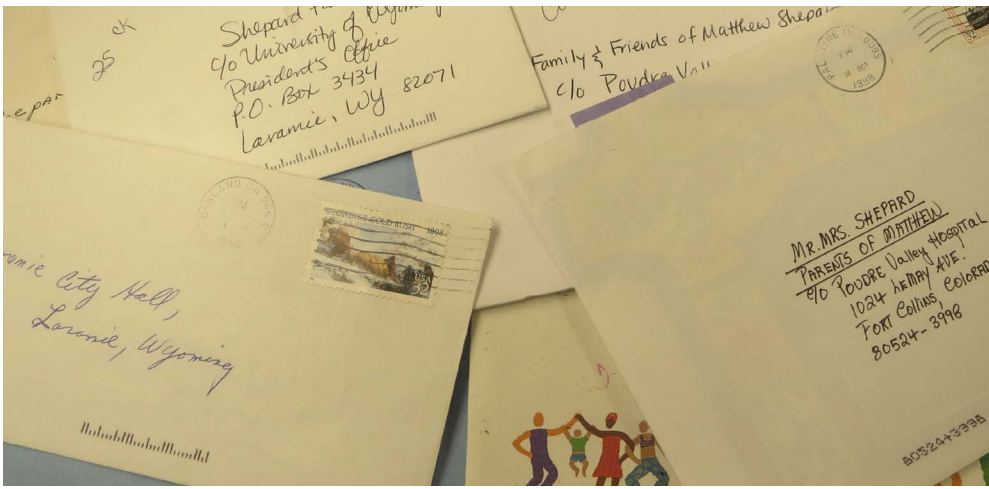 25 ck
Shepard
c/o University of Wyoming
President's Office
P.O. Box 3434
Laramie, WY 82071
Family & Friends of Matthew Shepar
c/o Poudre Vall
PALATINE IL 60095
PM
14 OCT
1998
32
OAKLAND CA
KLONDIKE GOLD RUSH 1898
USA
32
ramie City Hall,
Laramie, Wyoming
MR. MRS. SHEPARD
PARENTS OF MATTHEW
c/o POUDRE Valley Hospital
1024 LEMAY AVE.
FORT COLLINS, COLORAD
80524-3998
80524+3998